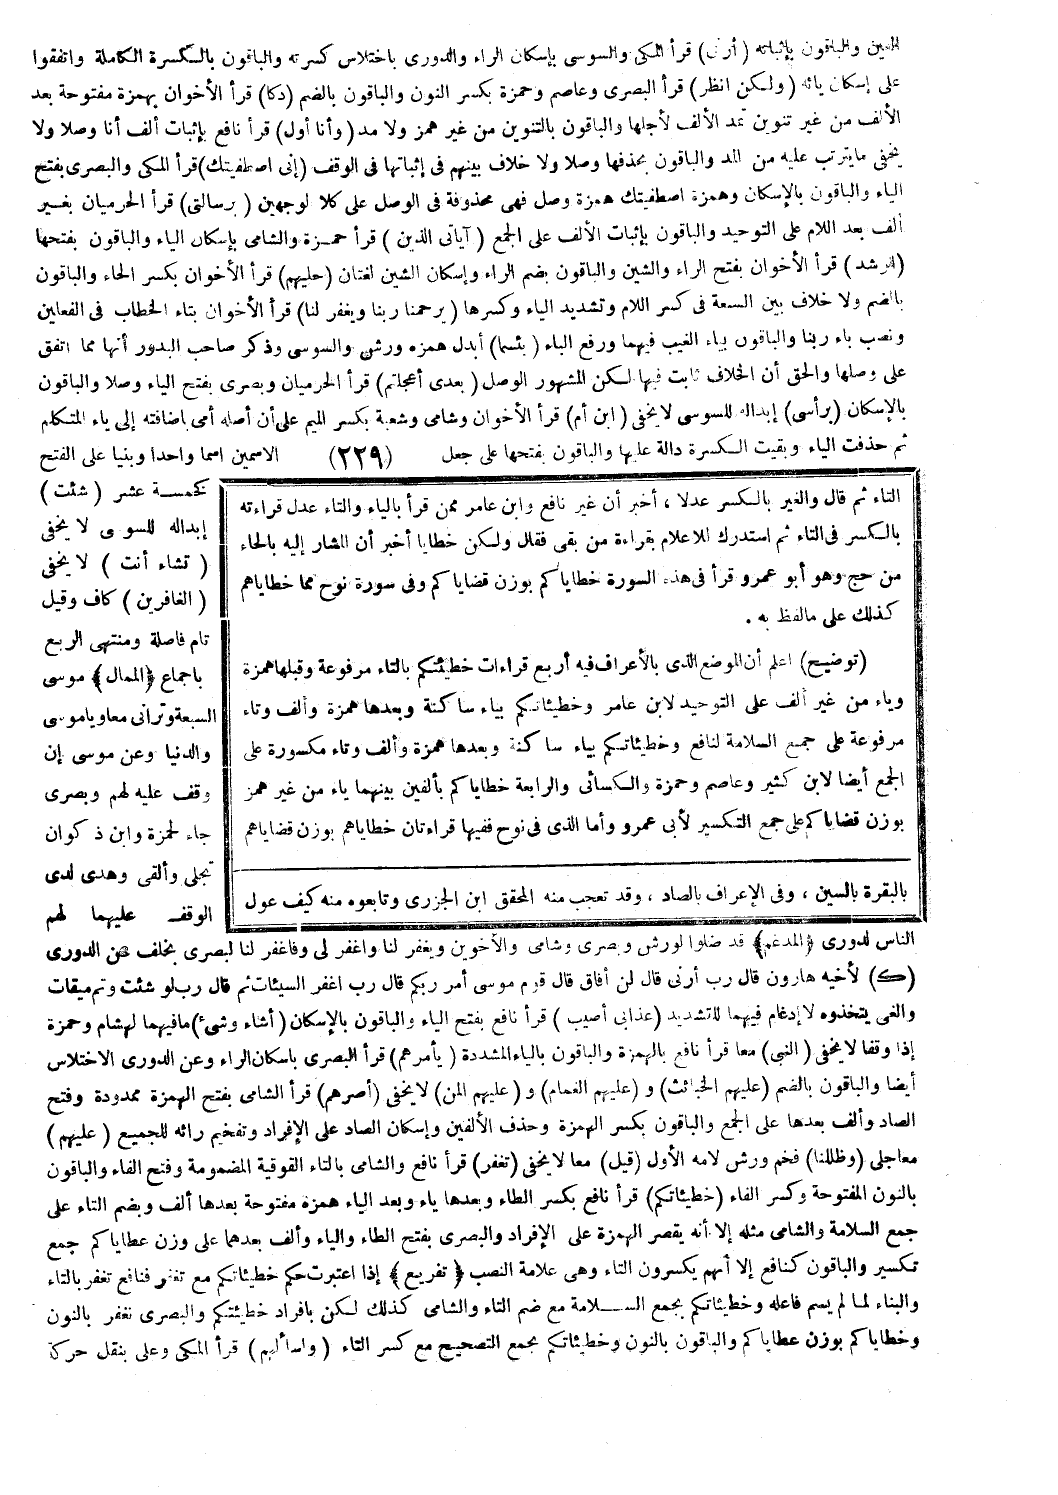 العين والباقون بإثباته (أرني) قرأ المكي والسوسي بإسكان الراء والدوري باختلاس كسرته والباقون بالكسرة الكاملة واتفقوا
على إسكان يائه (ولكن انظر) قرأ البصري وعاصم وحمزة بكسر النون والباقون بالضم (دكا) قرأ الأخوان بهمزة مفتوحة بعد
الألف من غير تنوين تمد الألف لأجلها والباقون بالتنوين من غير همز ولا مد (وأنا أول) قرأ نافع بإثبات ألف أنا وصلا ولا
يخفى مايترتب عليه من المد والباقون بحذفها وصلا ولا خلاف بينهم في إثباتها في الوقف (إني اصطفيتك) قرأ المكي والبصري بفتح
الياء والباقون بالإسكان وهمزة اصطفيتك همزة وصل فهي محذوفة في الوصل على كلا لوجهين (رسالتي) قرأ الحرميان بغير
ألف بعد اللام على التوحيد والباقون بإثبات الألف على الجمع (آياتي الذين) قرأ حمزة والشامي بإسكان الياء والباقون بفتحها
(الرشد) قرأ الأخوان بفتح الراء والشين والباقون بضم الراء وإسكان الشين لغتان (حليهم) قرأ الأخوان بكسر الحاء والباقون
بالضم ولا خلاف بين السعة في كسر اللام وتشديد الياء وكسرها (يرحمنا ربنا ويغفر لنا) قرأ الأخوان بتاء الخطاب في الفعلين
ونصب باء ربنا والباقون بياء الغيب فيهما ورفع الباء (بئسما) أبدل همزه ورش والسوسي وذكر صاحب البدور أنها مما اتفق
على وصلها والحق أن الخلاف ثابت فيها لكن المشهور الوصل (بعدي أعجلتم) قرأ الحرميان وبصرى بفتح الياء وصلا والباقون
بالإسكان (برأسي) إبداله للسوسي لايخفى (ابن أم) قرأ الأخوان وشامى وشعبة بكسر الميم على أن أصله أمي باضافته إلى ياء المتكلم
ثم حذفت الياء وبقيت الكسرة دالة عليها والباقون بفتحها على جعل (٢٢٩) الاسمين اسما واحدا وبنيا على الفتح
كخمسة عشر (شئت)
إبداله للسوسي لا يخفى
(تشاء أنت) لا يخفى
(الغافرين) كاف وقيل
تام فاصلة ومنتهى الربع
باجماع ﴿الممال﴾ موسى
السبعة وتراني معا وياموسى
والدنيا وعن موسى إن
وقف عليه لهم وبصرى
جاء لحمزة وابن ذكوان
تجلى وألقى وهدى لدى
الوقف عليهما لهم
التاء ثم قال والغير بالكسر عدلا ، أخبر أن غير نافع وابن عامر ممن قرأ بالياء والتاء عدل قراءته
بالكسر في التاء ثم استدرك للاعلام بقراءة من بقى فقال ولكن خطايا أخبر أن المشار إليه بالحاء
من حج وهو أبو عمرو قرأ في هذه السورة خطاياكم بوزن قضاياكم وفي سورة نوح مما خطاياهم
كذلك على مالفظ به .
(توضيح) اعلم أن الموضع الذي بالأعراف فيه أربع قراءات خطيئتكم بالتاء مرفوعة وقبلها همزة
وياء من غير ألف على التوحيد لابن عامر وخطيئاتكم بياء ساكنة وبعدها همزة وألف وتاء
مرفوعة على جمع السلامة لنافع وخطيئاتكم بياء ساكنة وبعدها همزة وألف وتاء مكسورة على
الجمع أيضا لابن كثير وعاصم وحمزة والكسائي والرابعة خطاياكم بألفين بينهما ياء من غير همز
بوزن قضاياكم على جمع التكسير لأبي عمرو وأما الذي في نوح ففيها قراءتان خطاياهم بوزن قضاياهم
بالبقرة بالسين ، وفي الإعراف بالصاد ، وقد تعجب منه المحقق ابن الجزري وتابعوه منه كيف عول
الناس لدوري ﴿المدغم﴾ قد ضلوا لورش وبصرى وشامى والأخوين ويغفر لنا واغفر لي وفاغفر لنا لبصرى بخلف عن الدوري
(ك) لأخيه هارون قال رب أرني قال لن أفاق قال قوم موسى أمر ربكم قال رب اغفر السيئات ثم قال رب لو شئت وتم ميقات
والغى يتخذوه لا إدغام فيهما للتشديد (عذابي أصيب) قرأ نافع بفتح الياء والباقون بالإسكان (أشاء وشيء) مافيهما لهشام وحمزة
إذا وقفا لا يخفى (النبي) معا قرأ نافع بالهمزة والباقون بالياء المشددة (يأمرهم) قرأ البصري باسكان الراء وعن الدوري الاختلاس
أيضا والباقون بالضم (عليهم الخبائث) و (عليهم الغمام) و (عليهم المن) لا يخفى (أصرهم) قرأ الشامي بفتح الهمزة ممدودة وفتح
الصاد وألف بعدها على الجمع والباقون بكسر الهمزة وحذف الألفين وإسكان الصاد على الإفراد وتفخيم رائه للجميع (عليهم)
معاجلى (وظللنا) فخم ورش لامه الأول (قيل) معا لا يخفى (تغفر) قرأ نافع والشامي بالتاء الفوقية المضمومة وفتح الفاء والباقون
بالنون المفتوحة وكسر الفاء (خطيئاتكم) قرأ نافع بكسر الطاء وبعدها ياء وبعد الياء همزة مفتوحة بعدها ألف وبضم التاء على
جمع السلامة والشامي مثله إلا أنه يقصر الهمزة على الإفراد والبصري بفتح الطاء والياء وألف بعدهما على وزن عطاياكم جمع
تكسير والباقون كنافع إلا أنهم يكسرون التاء وهي علامة النصب ﴿تفريع﴾ إذا اعتبرت حكم خطيئاتكم مع تغفر فنافع تغفر بالتاء
والبناء لما لم يسم فاعله وخطيئاتكم بجمع السلامة مع ضم التاء والشامي كذلك لكن بافراد خطيئتكم والبصري نغفر بالنون
وخطاياكم بوزن عطاياكم والباقون بالنون وخطيئاتكم بجمع التصحيح مع كسر التاء (واسألهم) قرأ المكي وعلى بنقل حركة